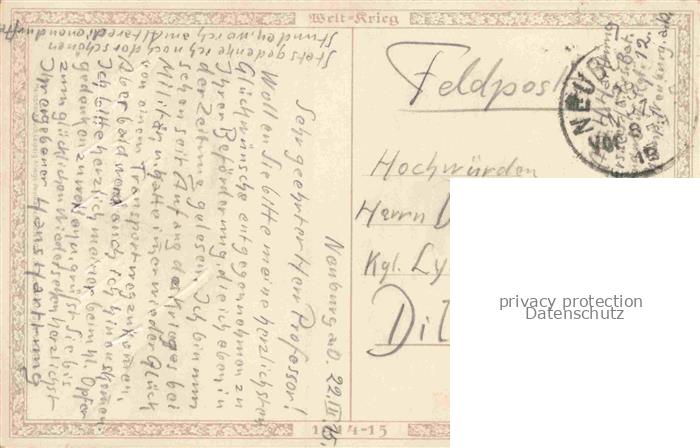 Welt-Krieg
Feldpost
Hochwürden
Herrn D
Kgl. Ly
Dil
Neuburg a/D. 22.III.15.
Sehr geehrter Herr Professor!
Wollen Sie bitte meine herzlichsten
Glückwünsche entgegennehmen zu
Ihrer Beförderung, die ich eben in
der Zeitung gelesen. Ich bin nun
schon seit Anfang des Krieges bei
Militär u. hatte immer wieder Glück
von einem Transport wegzukommen.
Aber bald werd auch ich hinauskommen.
Ich bitte herzlich meiner beim hl. Opfer
gedenken zu wollen u. grüßt Sie bis
zum glücklichen Wiedersehen herzlichst
Ihr ergebener Hans Hartung
Stets gedenke ich noch der schönen
Stunden, wo ich am Altare dienen durfte
1914-15
NEUB
privacy protection
Datenschutz